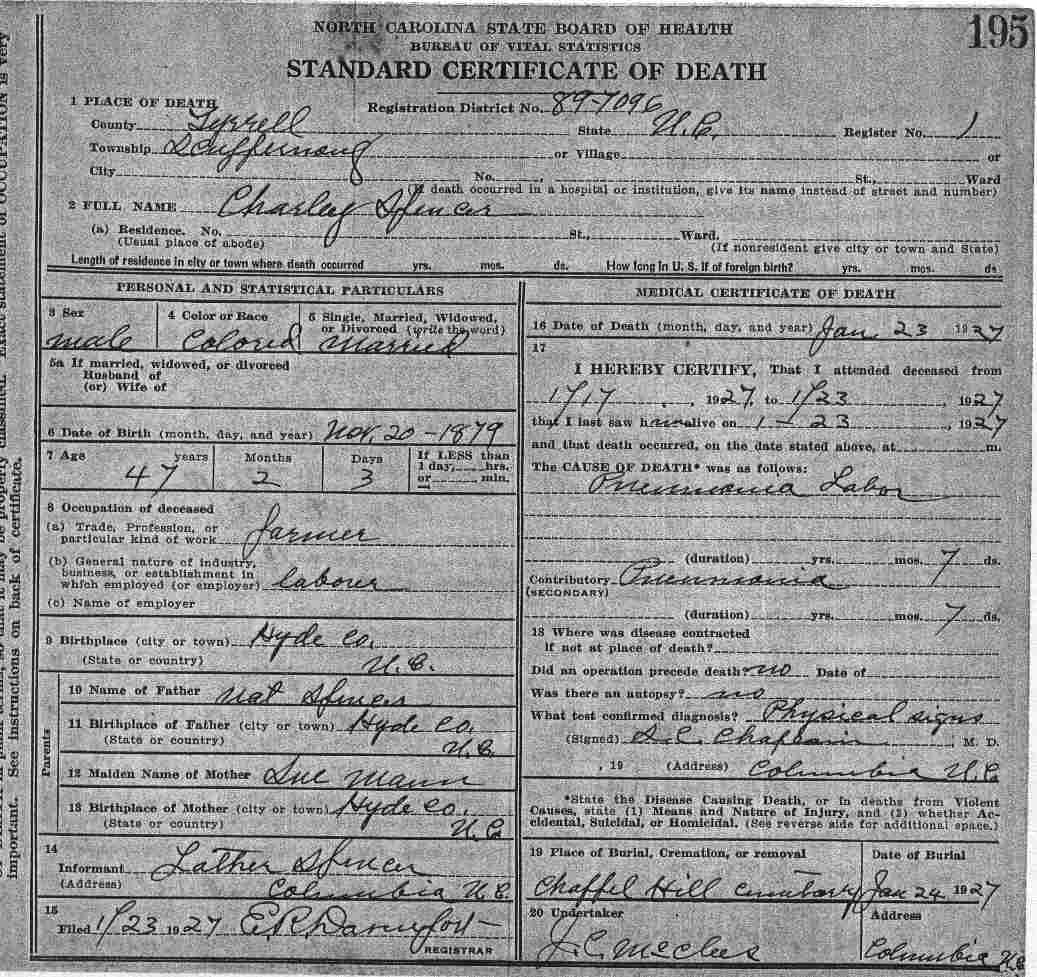 195
NORTH CAROLINA STATE BOARD OF HEALTH
BUREAU OF VITAL STATISTICS
STANDARD CERTIFICATE OF DEATH
1 PLACE OF DEATH Registration District No. 89-7096
County Tyrrell State N.C. Register No. 1
Township Scuffernong or Village or
City No. St., Ward
(If death occurred in a hospital or institution, give its name instead of street and number)
2 FULL NAME Charley Spencer
(a) Residence. No. St., Ward.
(Usual place of abode) (If nonresident give city or town and State)
Length of residence in city or town where death occurred yrs. mos. ds. How long in U. S. if of foreign birth? yrs. mos. ds
PERSONAL AND STATISTICAL PARTICULARS
3 Sex 4 Color or Race 5 Single, Married, Widowed,
or Divorced (write the word)
male Colored Married
5a If married, widowed, or divorced
Husband of
(or) Wife of
6 Date of Birth (month, day, and year) Nov. 20 - 1879
7 Age years Months Days If LESS than
1 day, hrs.
or min.
47 2 3
8 Occupation of deceased
(a) Trade, Profession, or
particular kind of work farmer
(b) General nature of industry,
business, or establishment in
which employed (or employer) labour
(c) Name of employer
9 Birthplace (city or town) Hyde Co.
(State or country) N.C.
Parents
10 Name of Father Nat Spencer
11 Birthplace of Father (city or town) Hyde Co.
(State or country) N.C.
12 Maiden Name of Mother Sue Mann
13 Birthplace of Mother (city or town) Hyde Co.
(State or country) N.C
14
Informant Lather Spencer
(Address) Columbia N.C.
15
Filed 1/23 1927 E.R. Davenport
REGISTRAR
MEDICAL CERTIFICATE OF DEATH
16 Date of Death (month, day, and year) Jan. 23 1927
17
I HEREBY CERTIFY, That I attended deceased from
1/17, 1927, to 1/23, 1927
that I last saw him alive on 1 - 23, 1927
and that death occurred, on the date stated above, at m.
The CAUSE OF DEATH* was as follows:
Pneumonia Labor
(duration) yrs. mos. 7 ds.
Contributory Pneumonia
(SECONDARY)
(duration) yrs. mos. 7 ds.
18 Where was disease contracted
if not at place of death?
Did an operation precede death? no Date of
Was there an autopsy? no
What test confirmed diagnosis? Physical signs
(Signed) S.C. Chaplain, M. D.
, 19 (Address) Columbia N.C
*State the Disease Causing Death, or in deaths from Violent
Causes, state (1) Means and Nature of Injury, and (2) whether Ac-
cidental, Suicidal, or Homicidal. (See reverse side for additional space.)
19 Place of Burial, Cremation, or removal Date of Burial
Chaffel Hill cemetary Jan 24 1927
20 Undertaker Address
J.C. McClees Columbia N.C
important. See instructions on back of certificate.